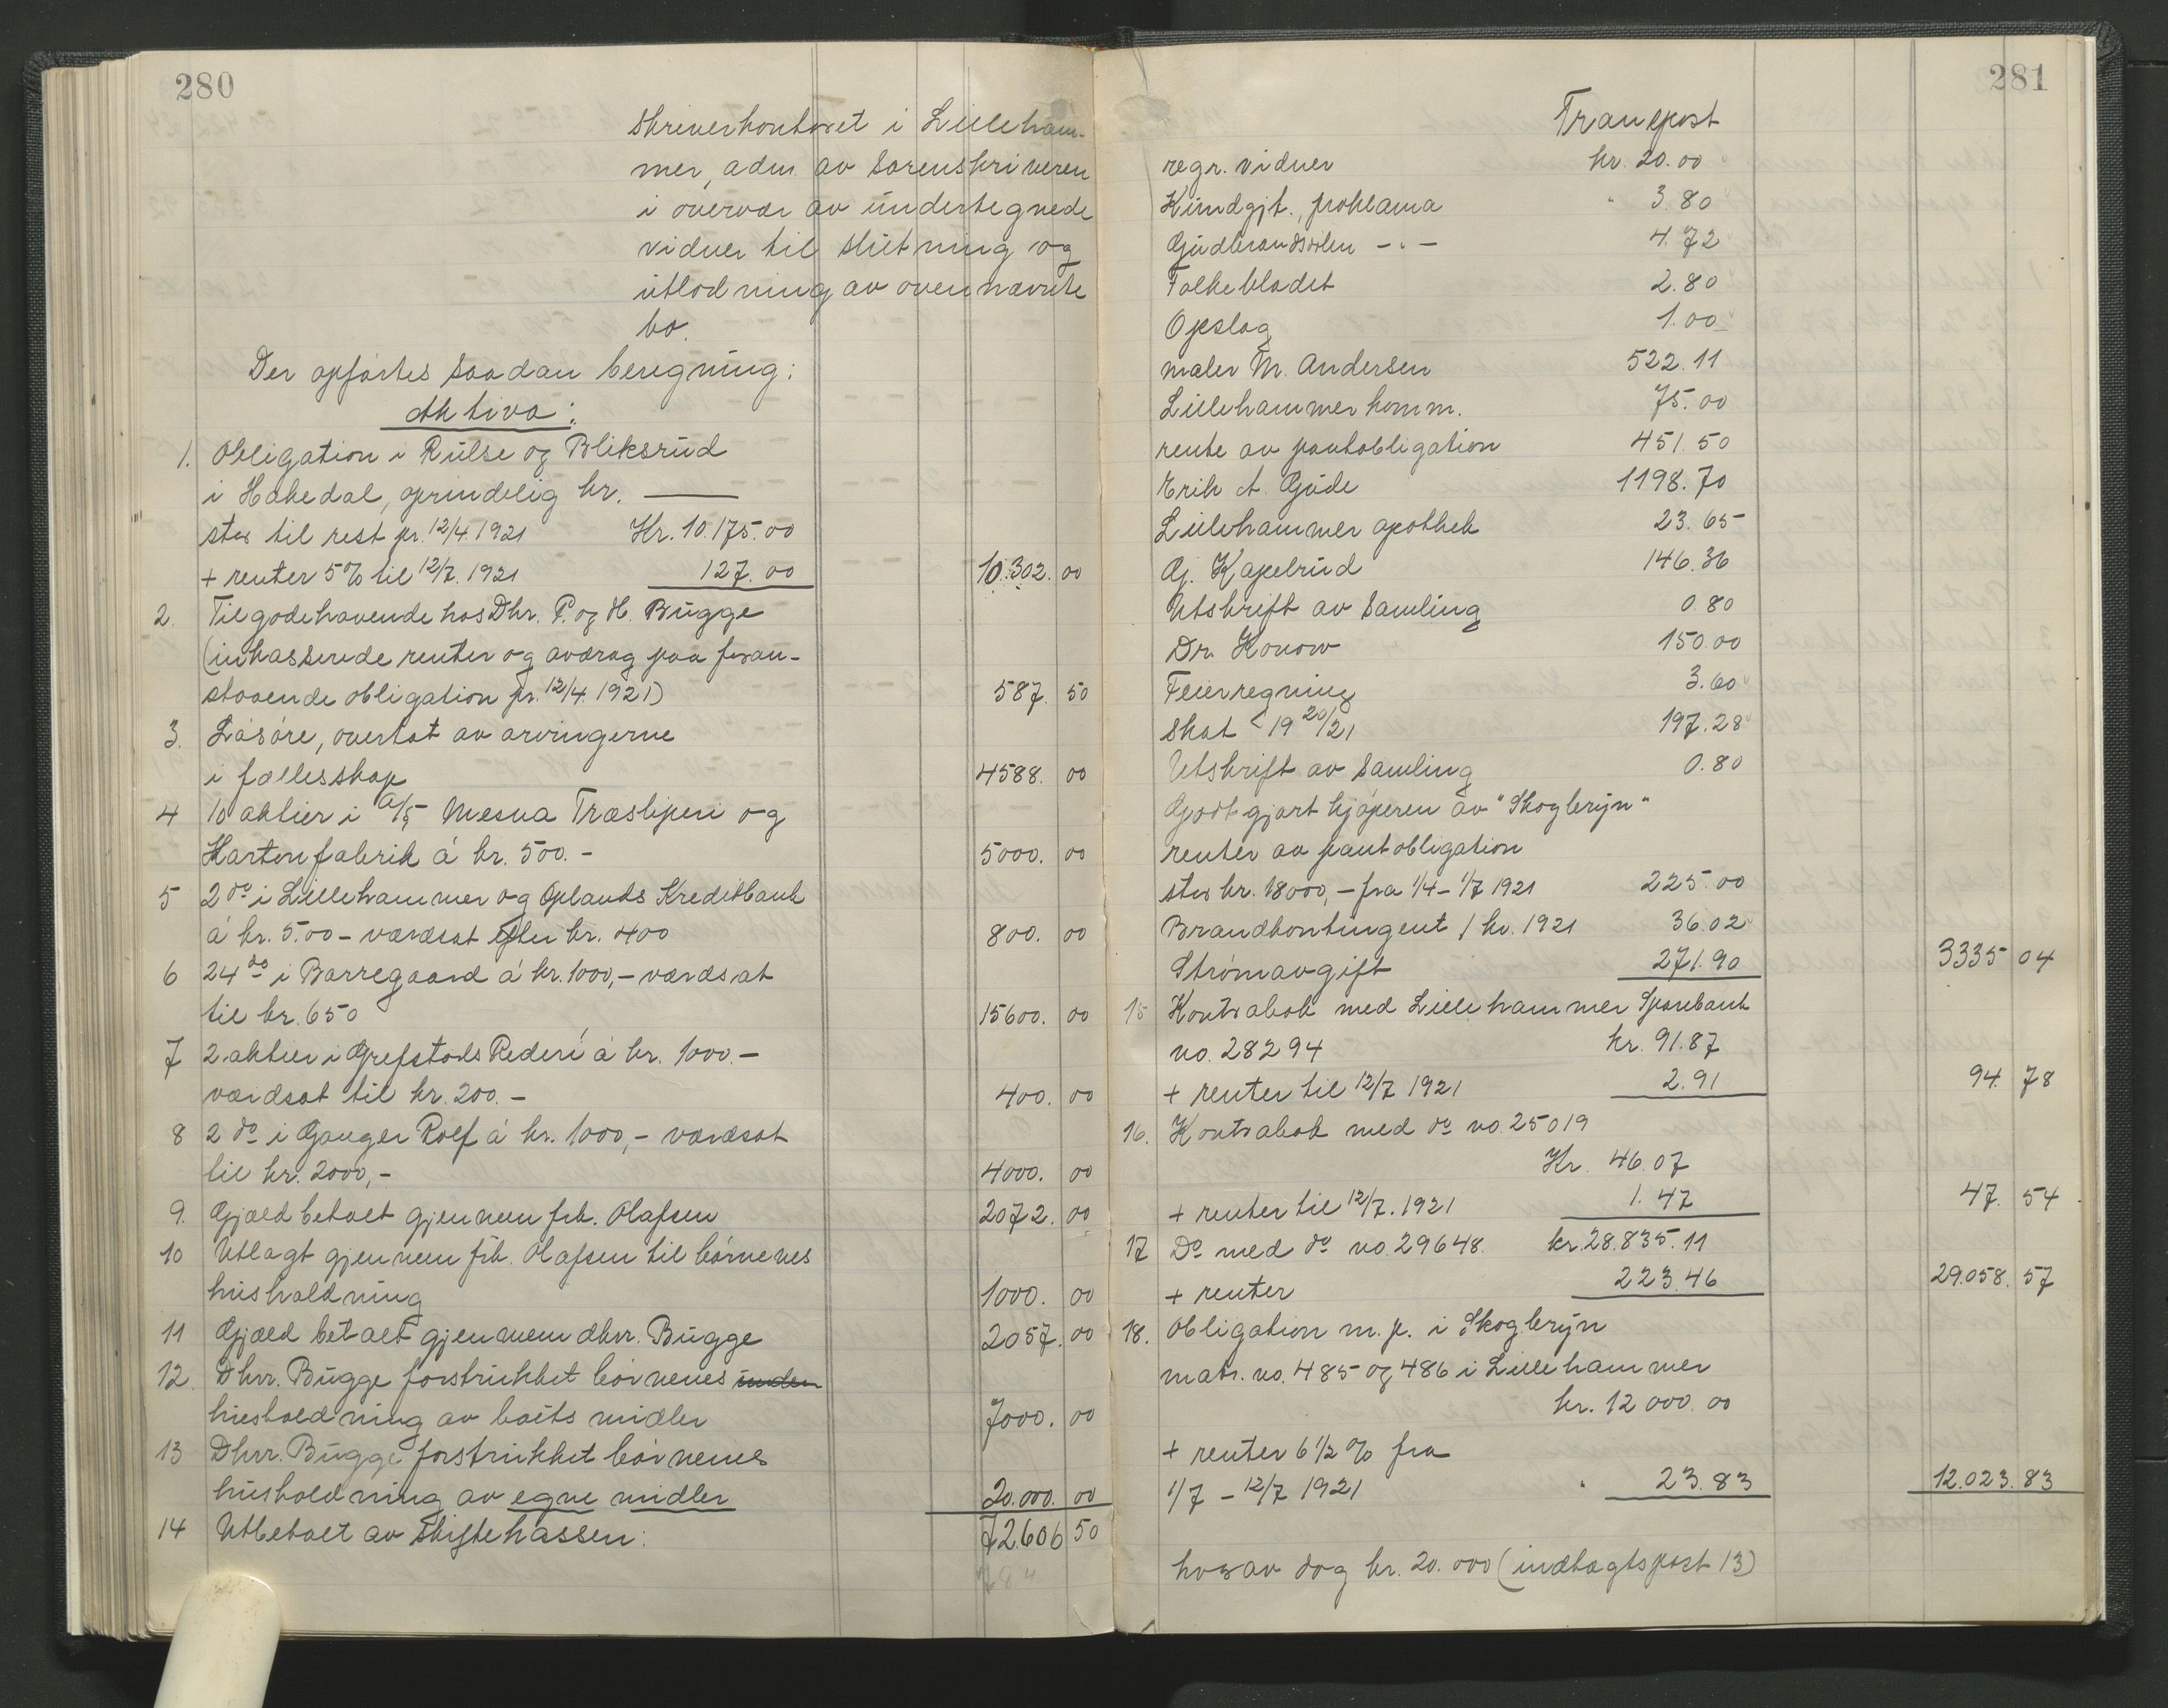 280
skriverkontoret i Lilleham-
mer, adm. av sorenskriveren
i overvær av undertegnede
vidner til slutning og
utlodning av ovennævnte
bo.
Der opførtes saadan beregning:
Aktiva:
1. Obligation i Rulse og Bliksrud
i Hakedal, oprindelig kr. ——
stor til rest pr. 12/4 1921 Kr. 10.175.00
+ renter 5% til 12/7. 1921 127.00 10.302.00
2. Tilgodehavende hos Dhr. P. og H. Bugge
(inkasserede renter og avdrag paa foran-
staaende obligation pr. 12/4 1921) 587.50
3. Løsøre, overtat av arvingerne
i fællesskap 4588.00
4 10 aktier i A/S Mesna Træsliperi og
Kartonfabrik á kr. 500.- 5000.00
5 2 do i Lillehammer og Oplands Kreditbank
á kr. 500 - værdsat efter kr. 400 800.00
6 24 do i Borregaard á kr. 1000,- værdsat
til kr. 650 15600.00
7 2 aktier i Grefstads Rederi á kr. 1000.-
værdsat til kr. 200.- 400.00
8 2 do i Ganger Rolf á kr. 1000,- værdsat
til kr. 2000,- 4000.00
9. Gjæld betalt gjennem frk. Olafsen 2072.00
10 Utlagt gjennem frk. Olafsen til børnenes
husholdning 1000.00
11 Gjæld betalt gjennem dhrr. Bugge 2057.00
12. Dhrr. Bugge forstrukket børnenes
husholdning av boets midler 7000.00
13 Dhrr. Bugge forstrukket børnenes
husholdning av egne midler 20.000.00
14 Utbetalt av skiftekassen: 72.606 50
281
Transport
regr. vidner kr. 20.00
Kundgjt., proklama " 3.80
Gudbrandsdølen - " - 4.72
Folkebladet 2.80
Opslag 1.00
maler M. Andersen 522.11
Lillehammer komm. 75.00
rente av pantobligation 451.50
Erik A. Gude 1198.70
Lillehammer apothek 23.65
Gj. Kapelrud 146.36
Utskrift av samling 0.80
Dr. Konow 150.00
Feierregning 3.60
Skat 19 20/21 197.28
Utskrift av samling 0.80
Godtgjort kjøperen av "Skogbryn"
renter av pantobligation
stor kr. 18000,- fra 1/4 - 1/7 1921 225.00
Brandkontingent 1 kv. 1921 36.02
Strømavgift 271.90 3335 04
15 Kontrabok med Lillehammer Sparebank
no. 28294 kr. 91.87
+ renter til 12/7 1921 2.91 94.78
16. Kontrabok med do no. 25019
Kr. 46.07
+ renter til 12/7. 1921 1.47 47.54
17 Do med do no. 29648. kr. 28.835.11
+ renter 223.46 29.058.57
18. Obligation m. p. i Skogbryn
matr. no. 485 og 486 i Lillehammer
kr. 12 000.00
+ renter 6 1/2 % fra
1/7 - 12/7 1921 " 23.83 12.023.83
hvorav dog kr. 20.000 (indtægtspost 13)